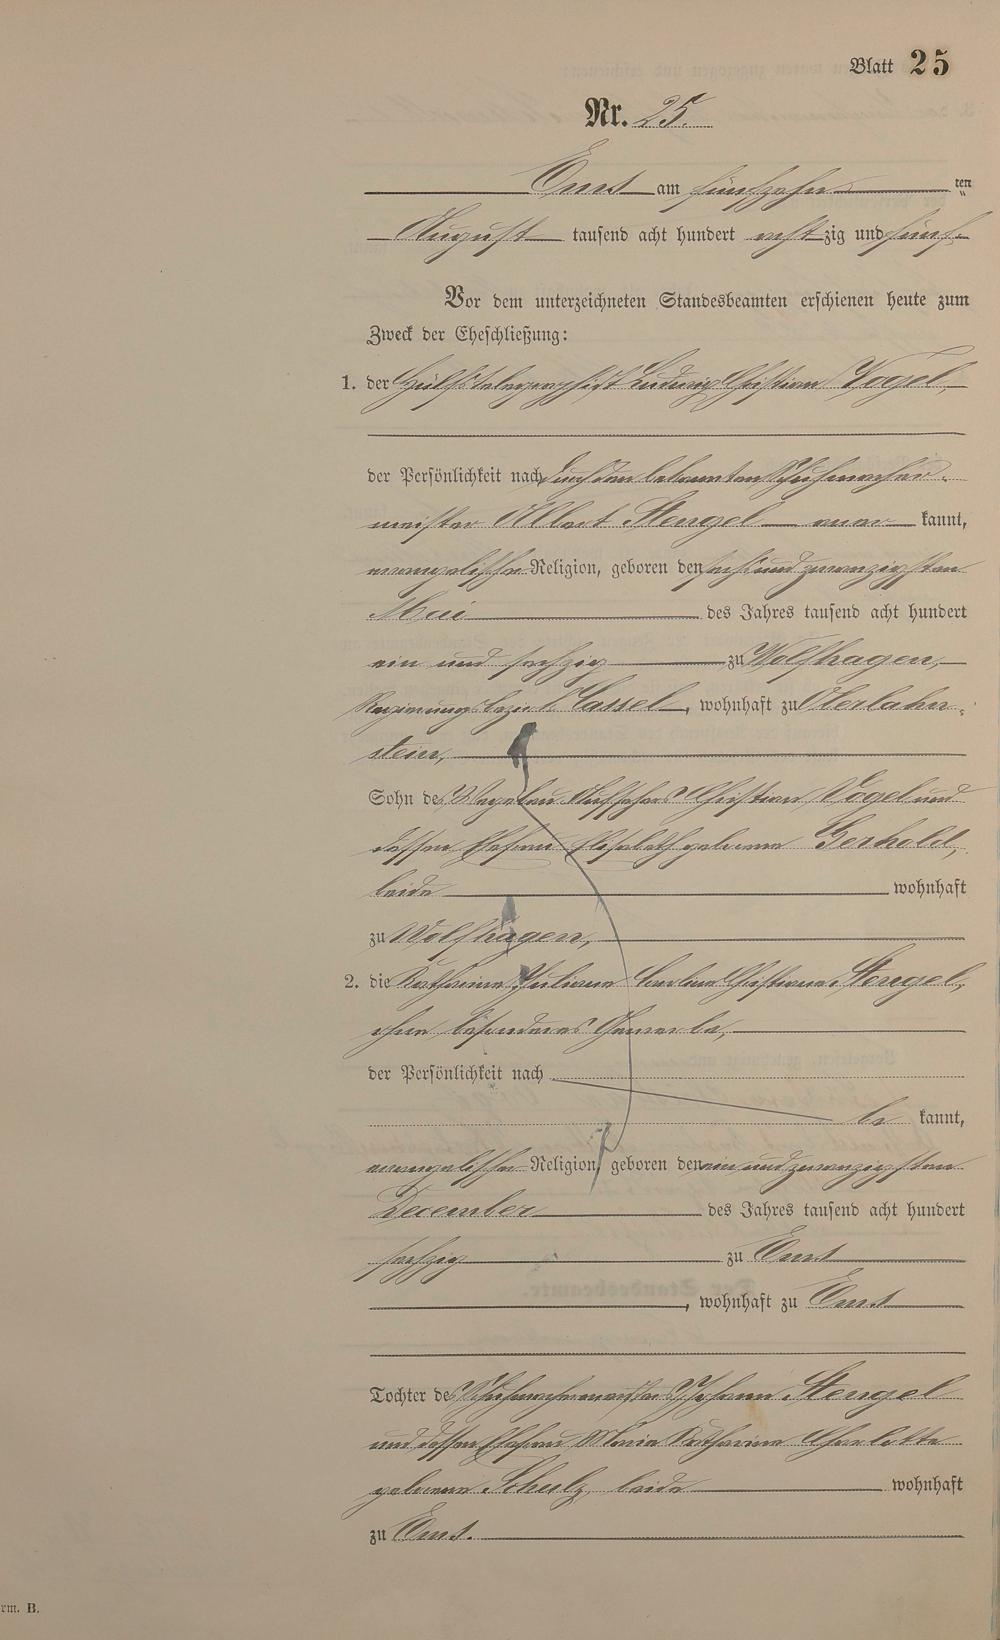 Blatt 25
Nr. 25.
Ems am fünfzehn ten
August tausend acht hundert acht zig und fünf.
Vor dem unterzeichneten Standesbeamten erschienen heute zum
Zweck der Eheschließung:
1. der Hülfstelegraphist Ludwig Christian Vogel,
der Persönlichkeit nach durch den bekannten Schuhmacher-
meister Albert Stengel aner kannt,
evangelischer Religion, geboren den sechs und zwanzigsten
Mai des Jahres tausend acht hundert
ein und sechzig zu Wolfhagen,
Regierungsbezirk Cassel, wohnhaft zu Oberlahn-
stein,
Sohn des Wegebau Aufsehers Christian Vogel und
dessen Ehefrau Elisabeth geborene Gerhold,
beide wohnhaft
zu Wolfhagen,
2. die Katharine Juliane Caroline Christiane Stengel,
ohne besonderes Gewerbe,
der Persönlichkeit nach
be kannt,
evangelischer Religion, geboren den ein und zwanzigsten
December des Jahres tausend acht hundert
sechzig zu Ems
, wohnhaft zu Ems
Tochter des Schuhmachermeister Johann Stengel
und dessen Ehefrau Maria Katharine Charlotte
geborene Schulz, beide wohnhaft
zu Ems.
rm. B.